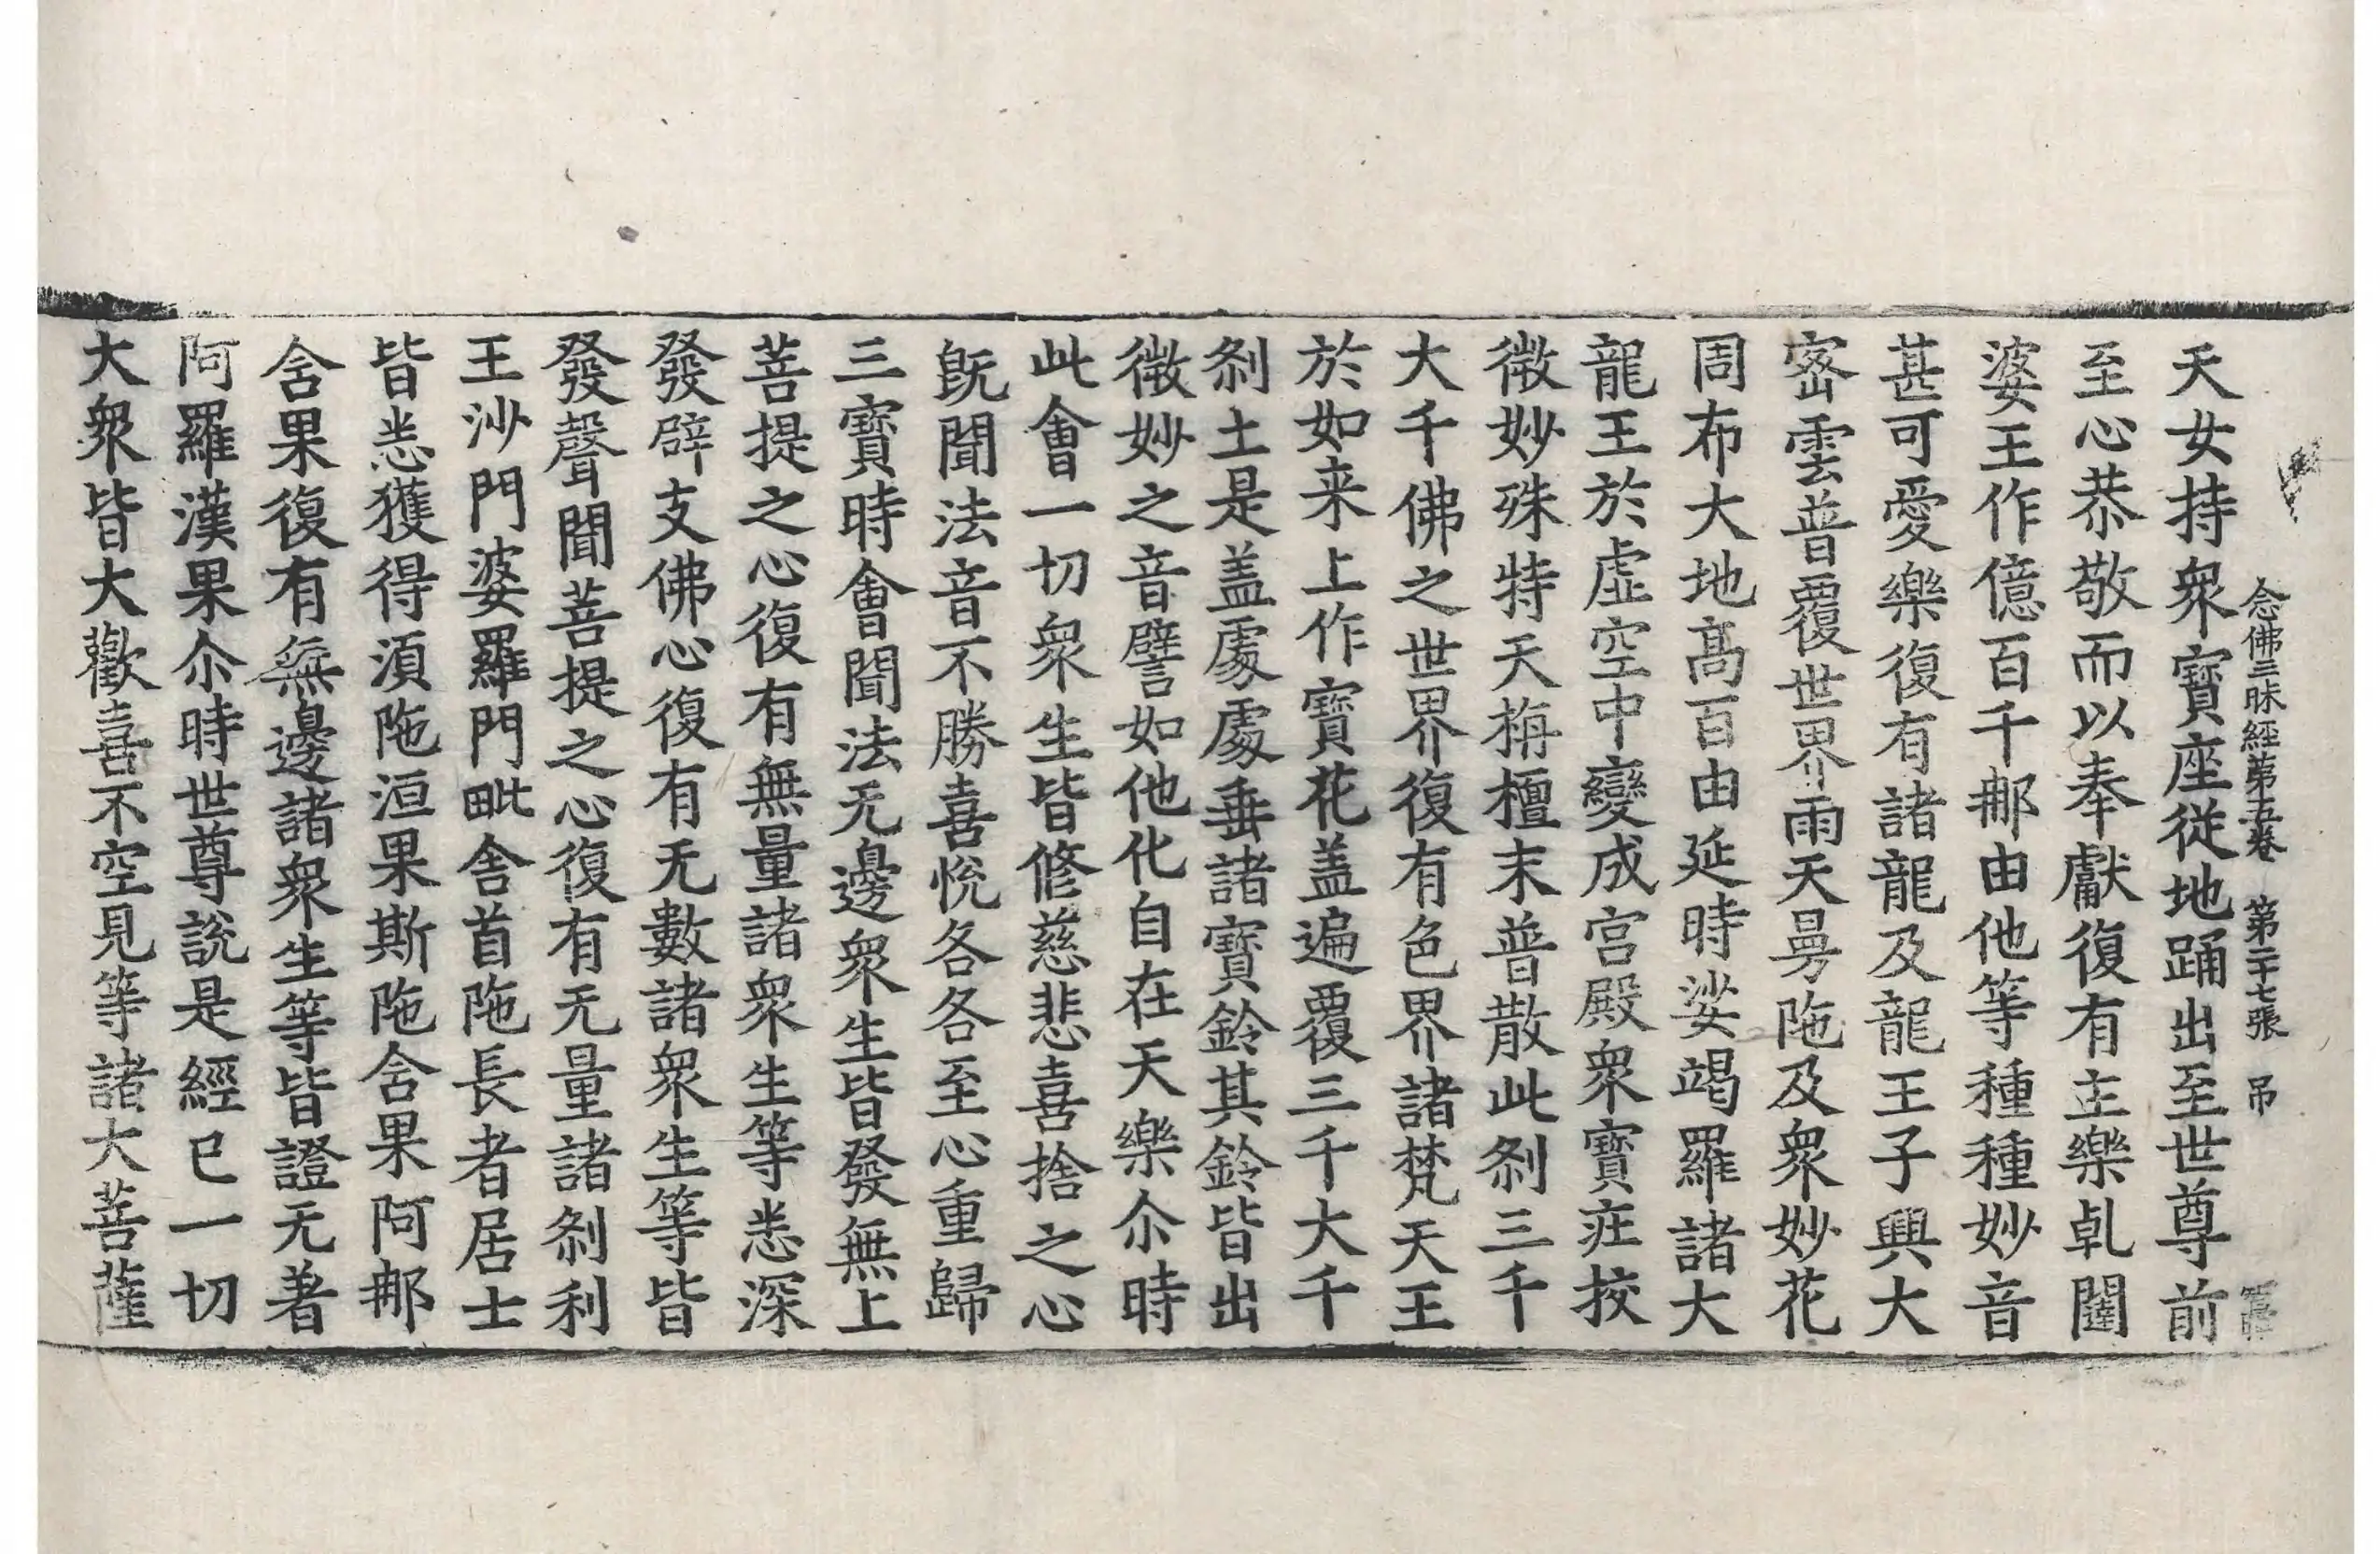 念佛三昧經第五卷 第二十七張 吊
天女持衆寶座從地踊出至世尊前
至心恭敬而以奉獻復有主樂乹闥
婆王作億百千郍由他等種種妙音
甚可愛樂復有諸龍及龍王子興大
宻雲普覆世界雨天曼陁及衆妙花
周布大地髙百由延時娑竭羅諸大
龍王於虛空中變成宫殿衆寶莊挍
微妙殊特天栴檀末普散此刹三千
大千佛之世界復有色界諸梵天王
於如来上作寶花盖遍覆三千大千
刹土是盖處處垂諸寶鈴其鈴皆出
微妙之音譬如他化自在天樂尒時
此會一切衆生皆修慈悲喜捨之心
既聞法音不勝喜悅各各至心重歸
三寶時會聞法无邊衆生皆發無上
菩提之心復有無量諸衆生等悉深
發辟支佛心復有无數諸衆生等皆
發聲聞菩提之心復有无量諸刹利
王沙門婆羅門毗舍首陁長者居士
皆悉獲得湏陁洹果斯陁含果阿郍
含果復有無邊諸衆生等皆證无著
阿羅漢果尒時世尊說是經已一切
大衆皆大歡喜不空見等諸大菩薩